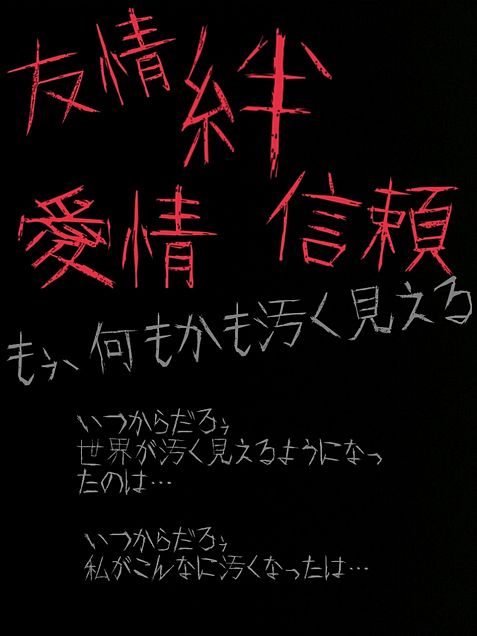 友情 絆
愛情 信頼
もぅ、何もかも汚く見える
いつからだろぅ
世界が汚く見えるようになっ
たのは…
いつからだろぅ
私がこんなに汚くなったは…